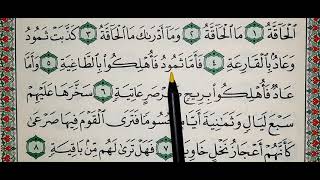 ٱلْحَآقَّةُ ١ مَا ٱلْحَآقَّةُ ٢ وَمَآ أَدْرَىٰكَ مَا ٱلْحَآقَّةُ ٣ كَذَّبَتْ ثَمُودُ
وَعَادٌۢ بِٱلْقَارِعَةِ ٤ فَأَمَّا ثَمُودُ فَأُهْلِكُوا۟ بِٱلطَّاغِيَةِ ٥ وَأَمَّا
عَادٌ فَأُهْلِكُوا۟ بِرِيحٍ صَرْصَرٍ عَاتِيَةٍ ٦ سَخَّرَهَا عَلَيْهِمْ
سَبْعَ لَيَالٍ وَثَمَٰنِيَةَ أَيَّامٍ حُسُومًا فَتَرَى ٱلْقَوْمَ فِيهَا صَرْعَىٰ
كَأَنَّهُمْ أَعْجَازُ نَخْلٍ خَاوِيَةٍ ٧ فَهَلْ تَرَىٰ لَهُم مِّنۢ بَاقِيَةٍ ٨